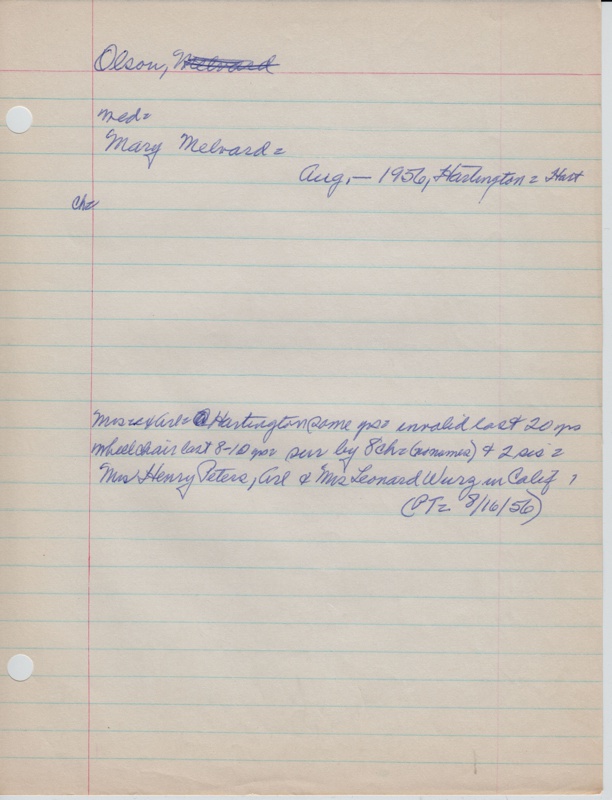 Olson, Melvard
med=
Mary Melvard=
Aug, — 1956, Hartington = Hart
ch=
Mrs = Arl = @ Hartington some yrs = invalid last 20 yrs
wheelchair last 8-10 yrs = surv by 8 ch = (no names) & 2 sis =
Mrs Henry Peters, Arl & Mrs Leonard Wurz in Calif
(PT= 8/16/56)